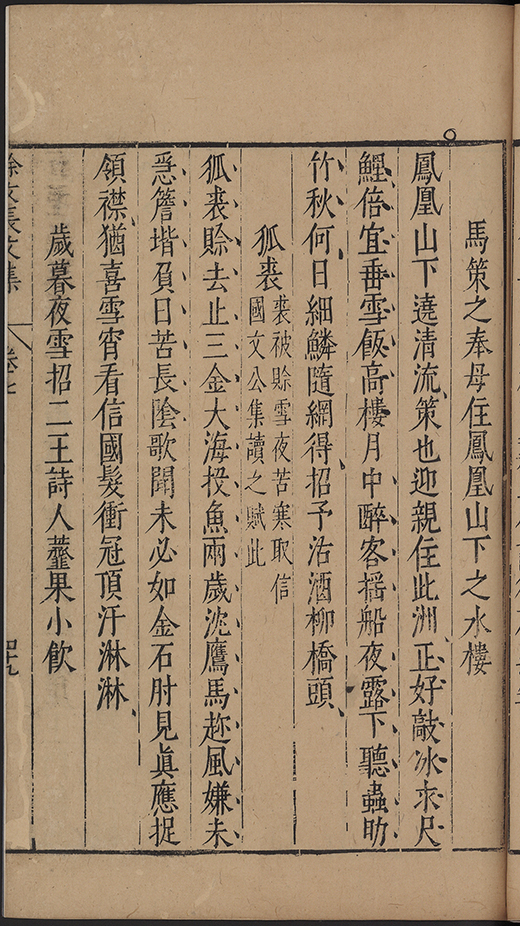 馬策之奉母住鳳凰山下之水樓
鳳凰山下遶清流策也迎親住此洲正好敲冰求尺
鯉倍宜垂雪飯高樓月中醉客搖船夜露下聽蟲助
竹秋何日細鱗隨網得招予沽酒柳橋頭
狐裘 裘被賒雪夜苦寒取信
國文公集讀之賦此
狐裘賒去止三金大海投魚兩歲沈鷹馬趂風嫌未
急簷堦負日苦長陰歌聞未必如金石肘見眞應捉
領襟猶喜雪宵看信國髮衝冠頂汗淋淋
歲暮夜雪招二王詩人虀果小飲
徐文長文集 卷七